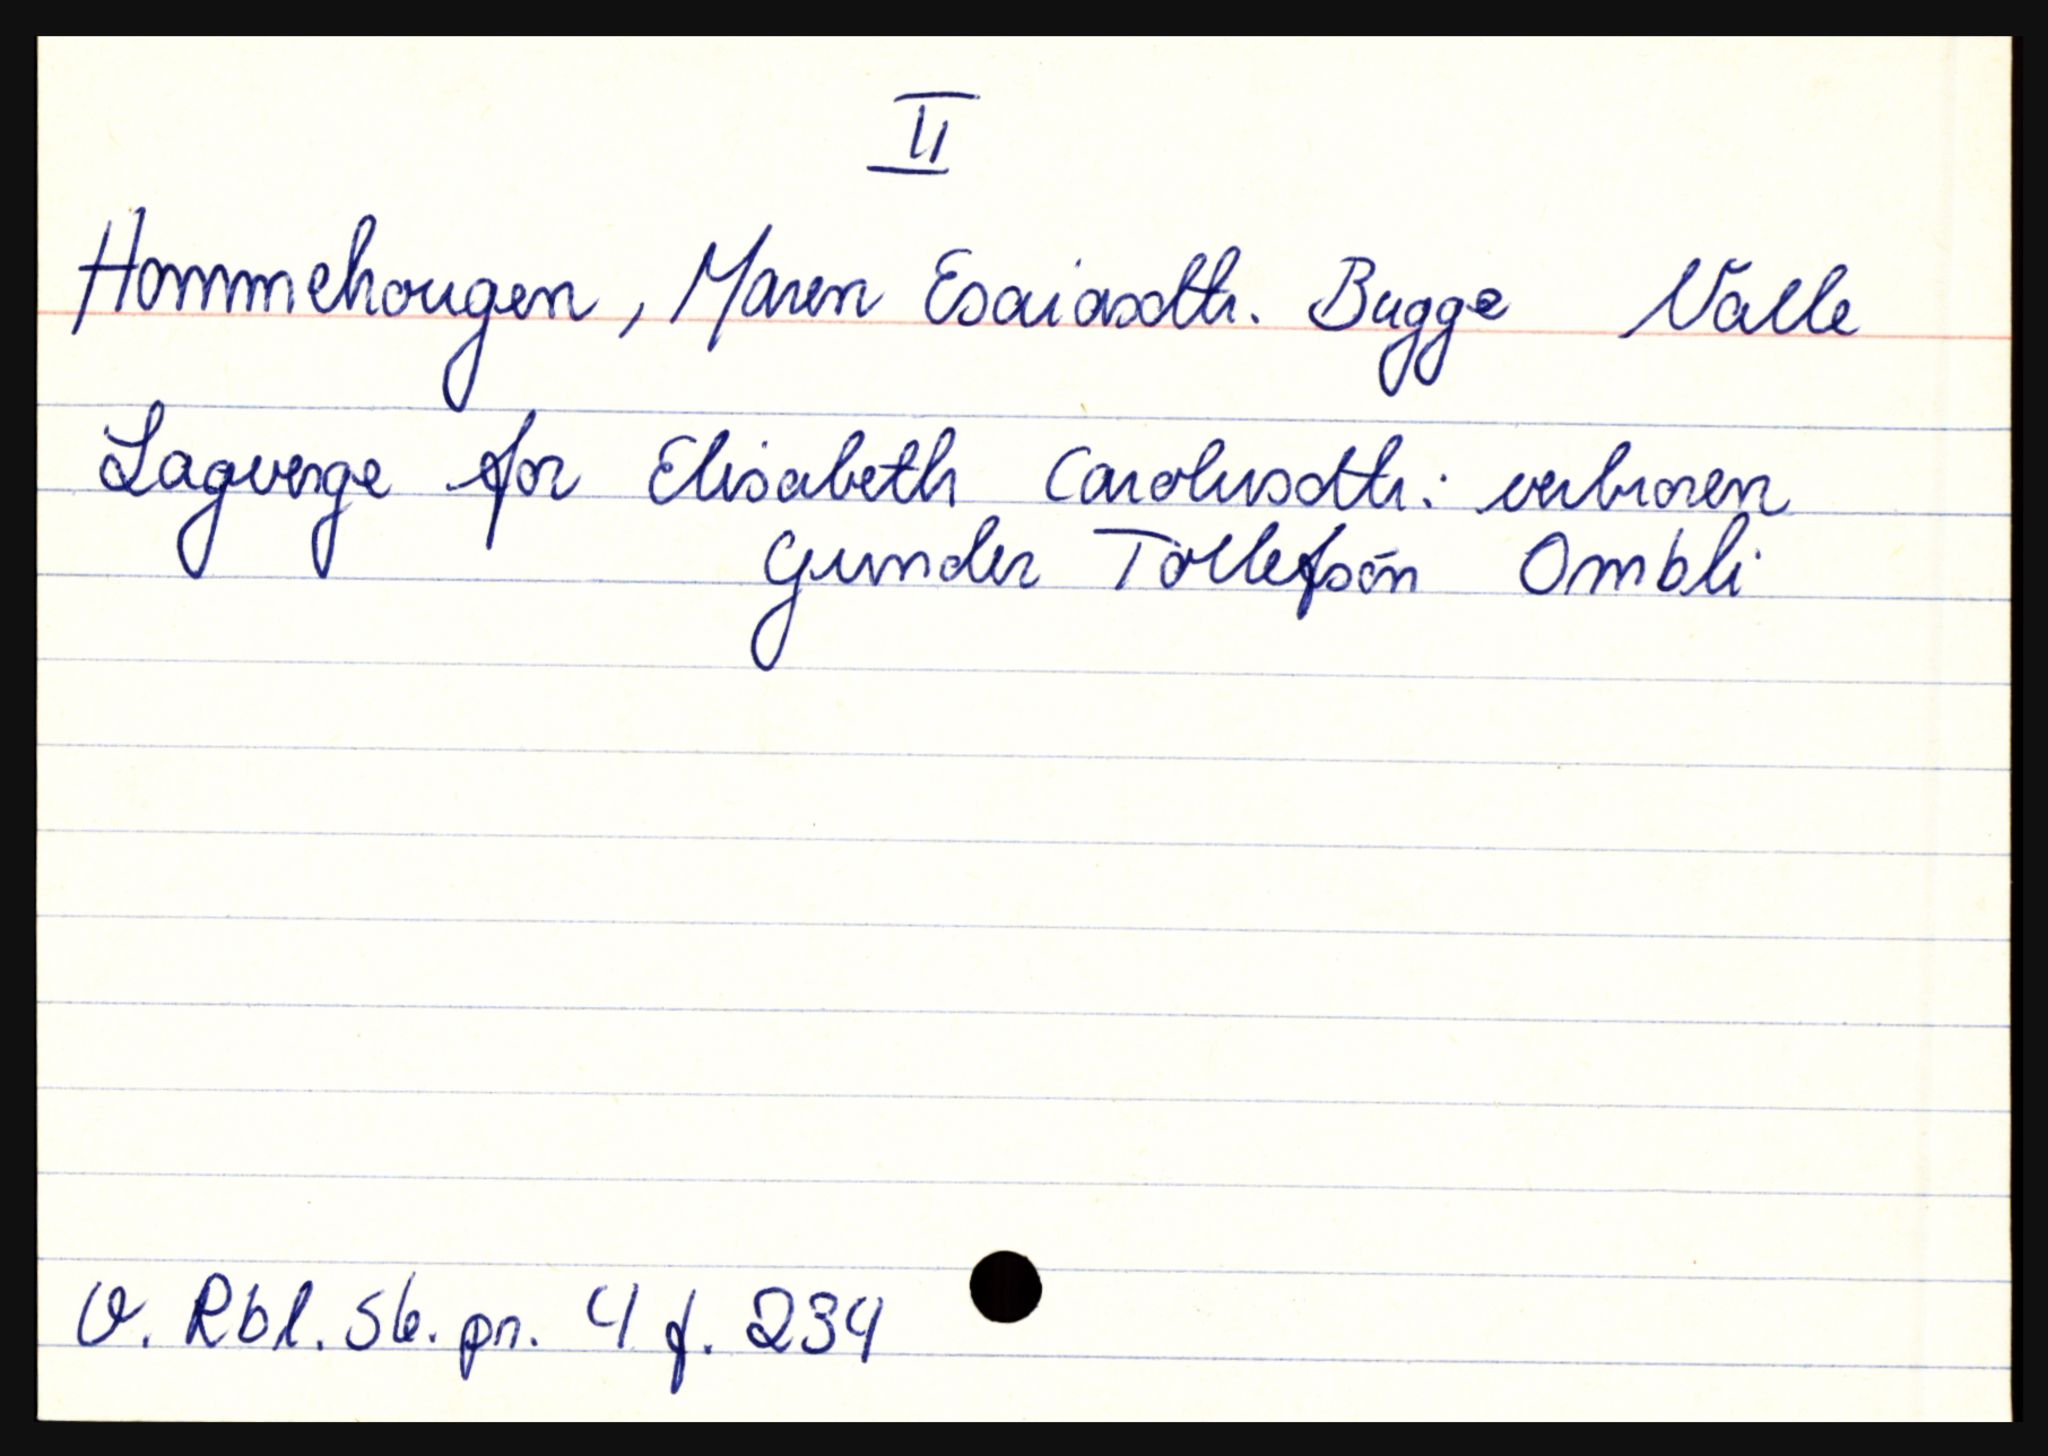 II
Hommehougen, Maren Esaiasdtr. Bugge Valle
Lagverge for Elisabeth Carolusdtr: verbroren
Gunder Tollefsön Ombli
V. Rbl. Sb. pr. 4 f. 234